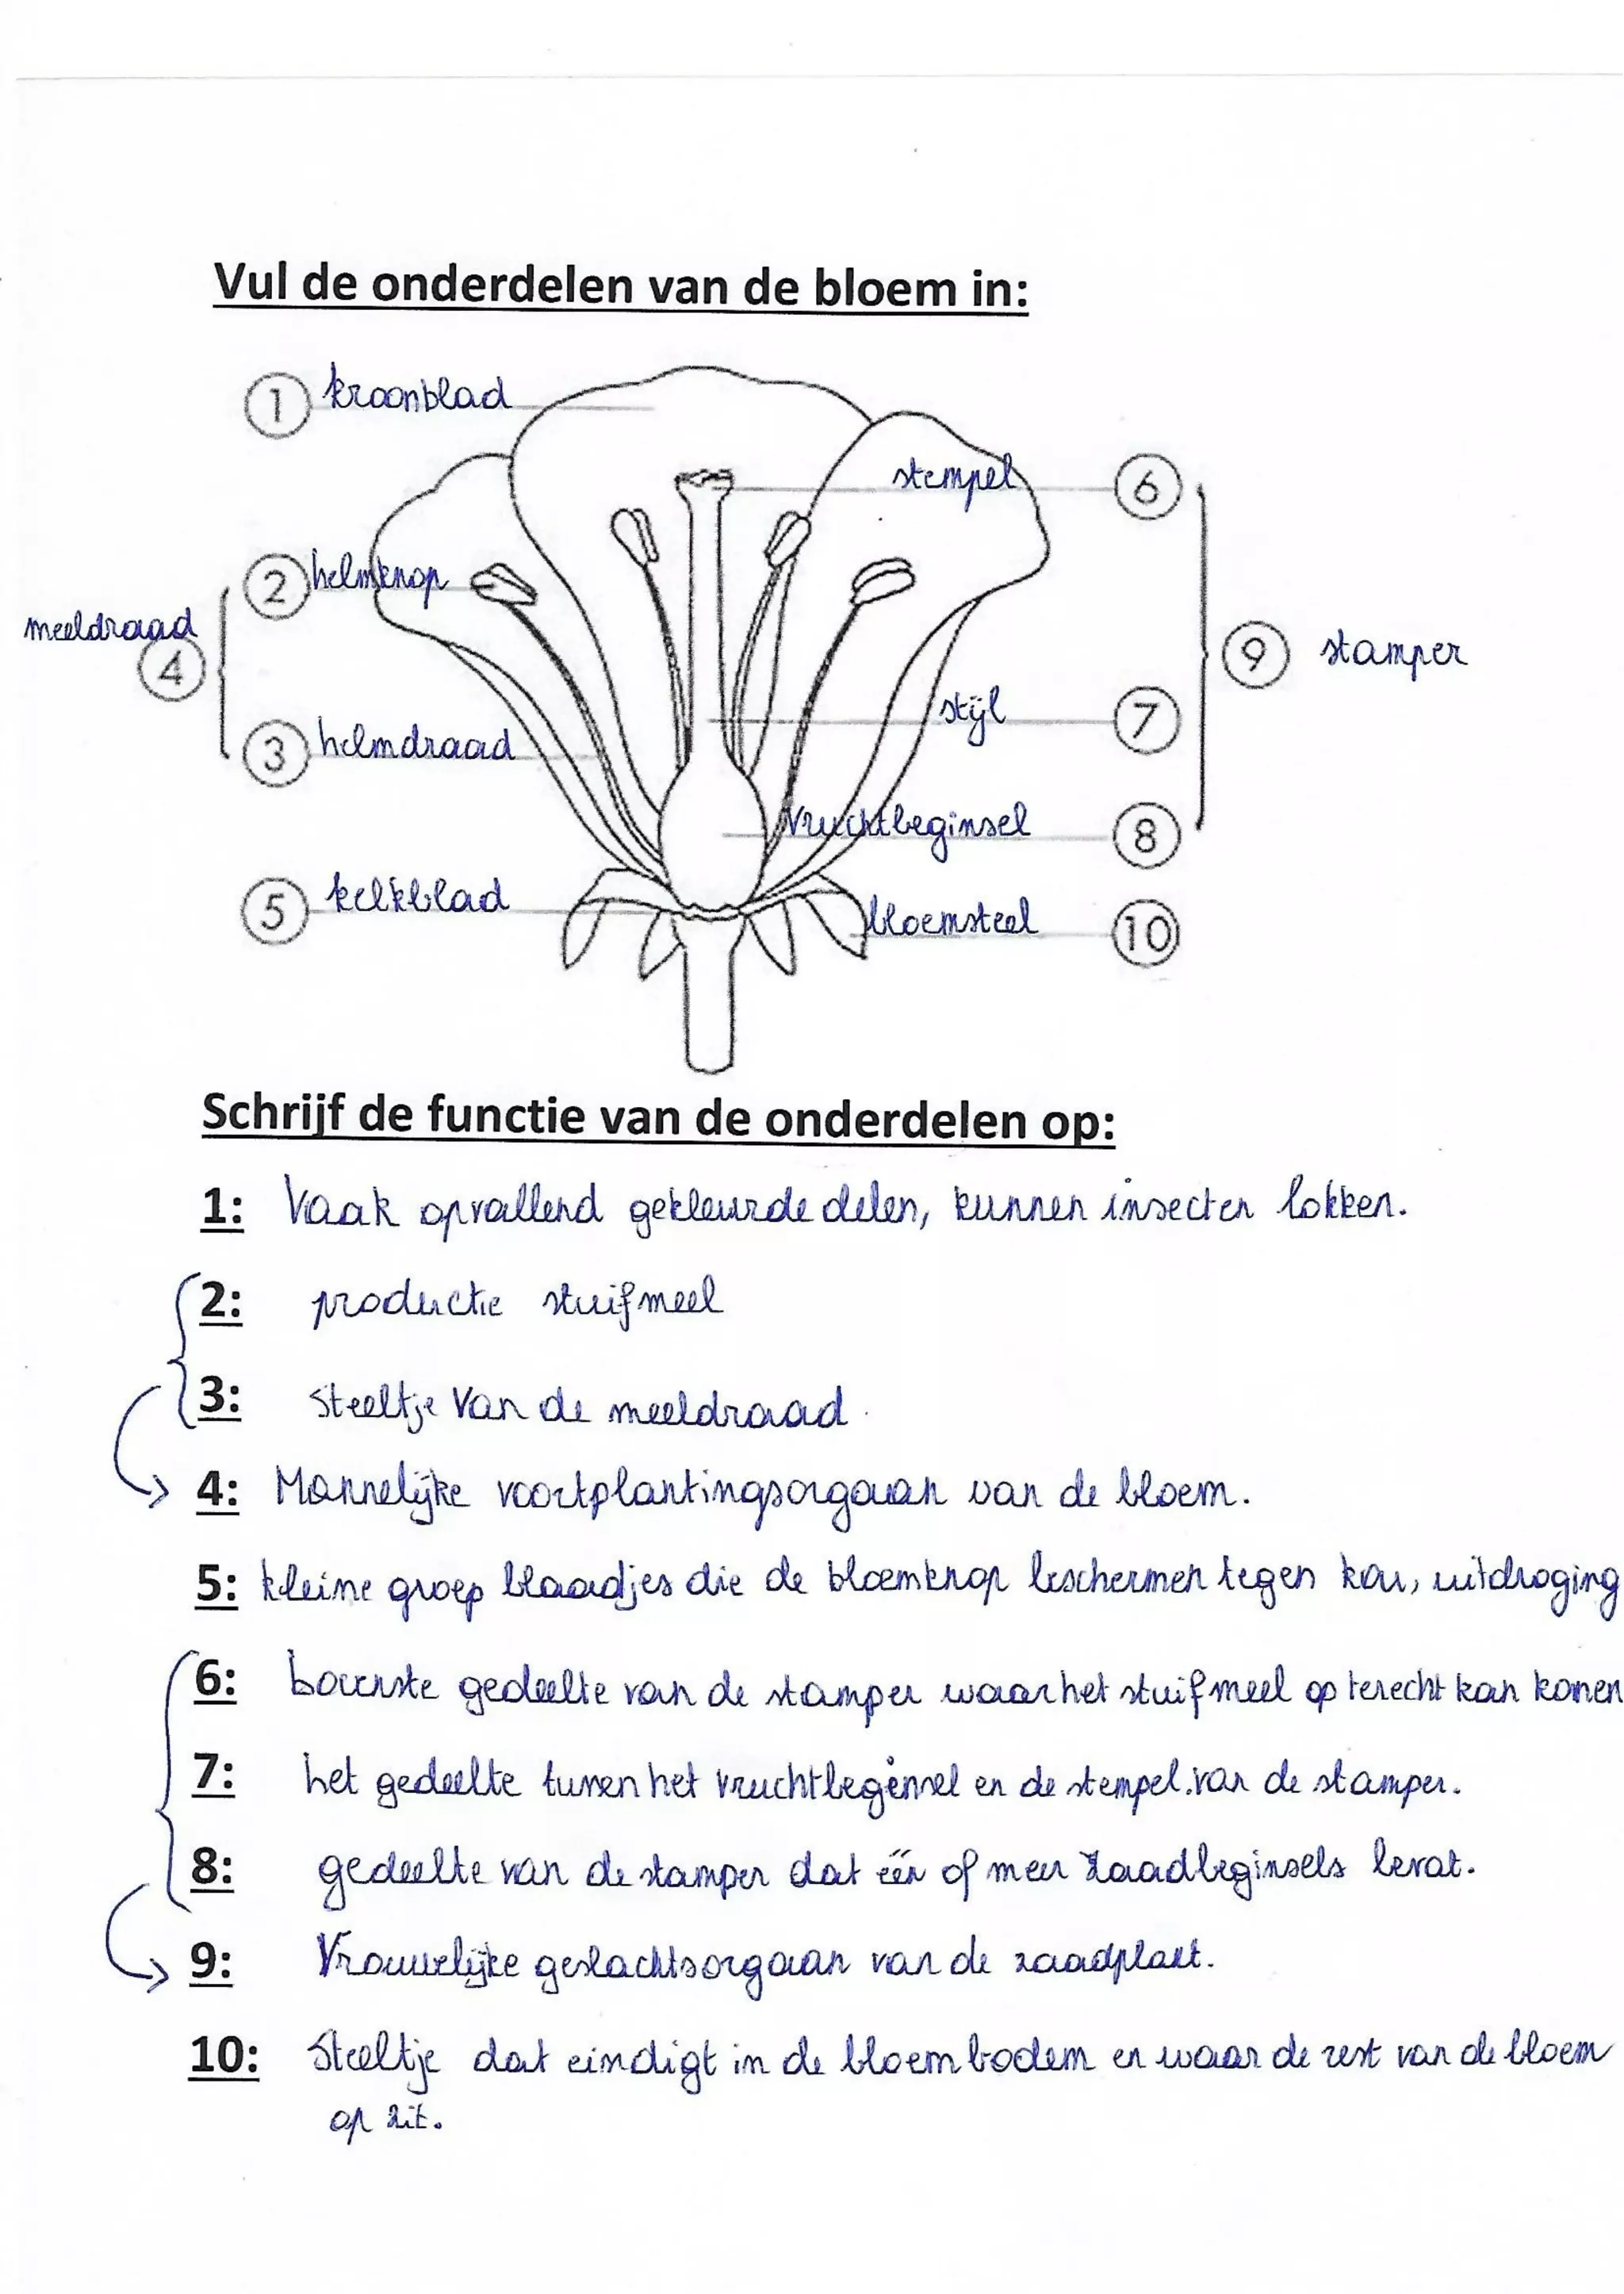 Vul de onderdelen van de bloem in:
1 kroonblad
stempel 6
2 helmknop
meeldraad
4
9 stamper
stijl 7
3 helmdraad
vruchtbeginsel 8
5 kelkblad
bloemsteel 10
Schrijf de functie van de onderdelen op:
1: Vaak opvallend gekleurde delen, kunnen insecten lokken.
2: productie stuifmeel
3: steeltje van de meeldraad.
4: Mannelijke voortplantingsorgaan van de bloem.
5: kleine groep blaadjes die de bloemknop beschermen tegen kou, uitdroging
6: bovenste gedeelte van de stamper waar het stuifmeel op terecht kan komen
7: het gedeelte tussen het vruchtbeginsel en de stempel.van de stamper.
8: gedeelte van de stamper dat één of meer zaadbeginsels bevat.
9: Vrouwelijke geslachtsorgaan van de zaadplant.
10: Steeltje dat eindigt in de bloembodem en waar de rest van de bloem
op zit.